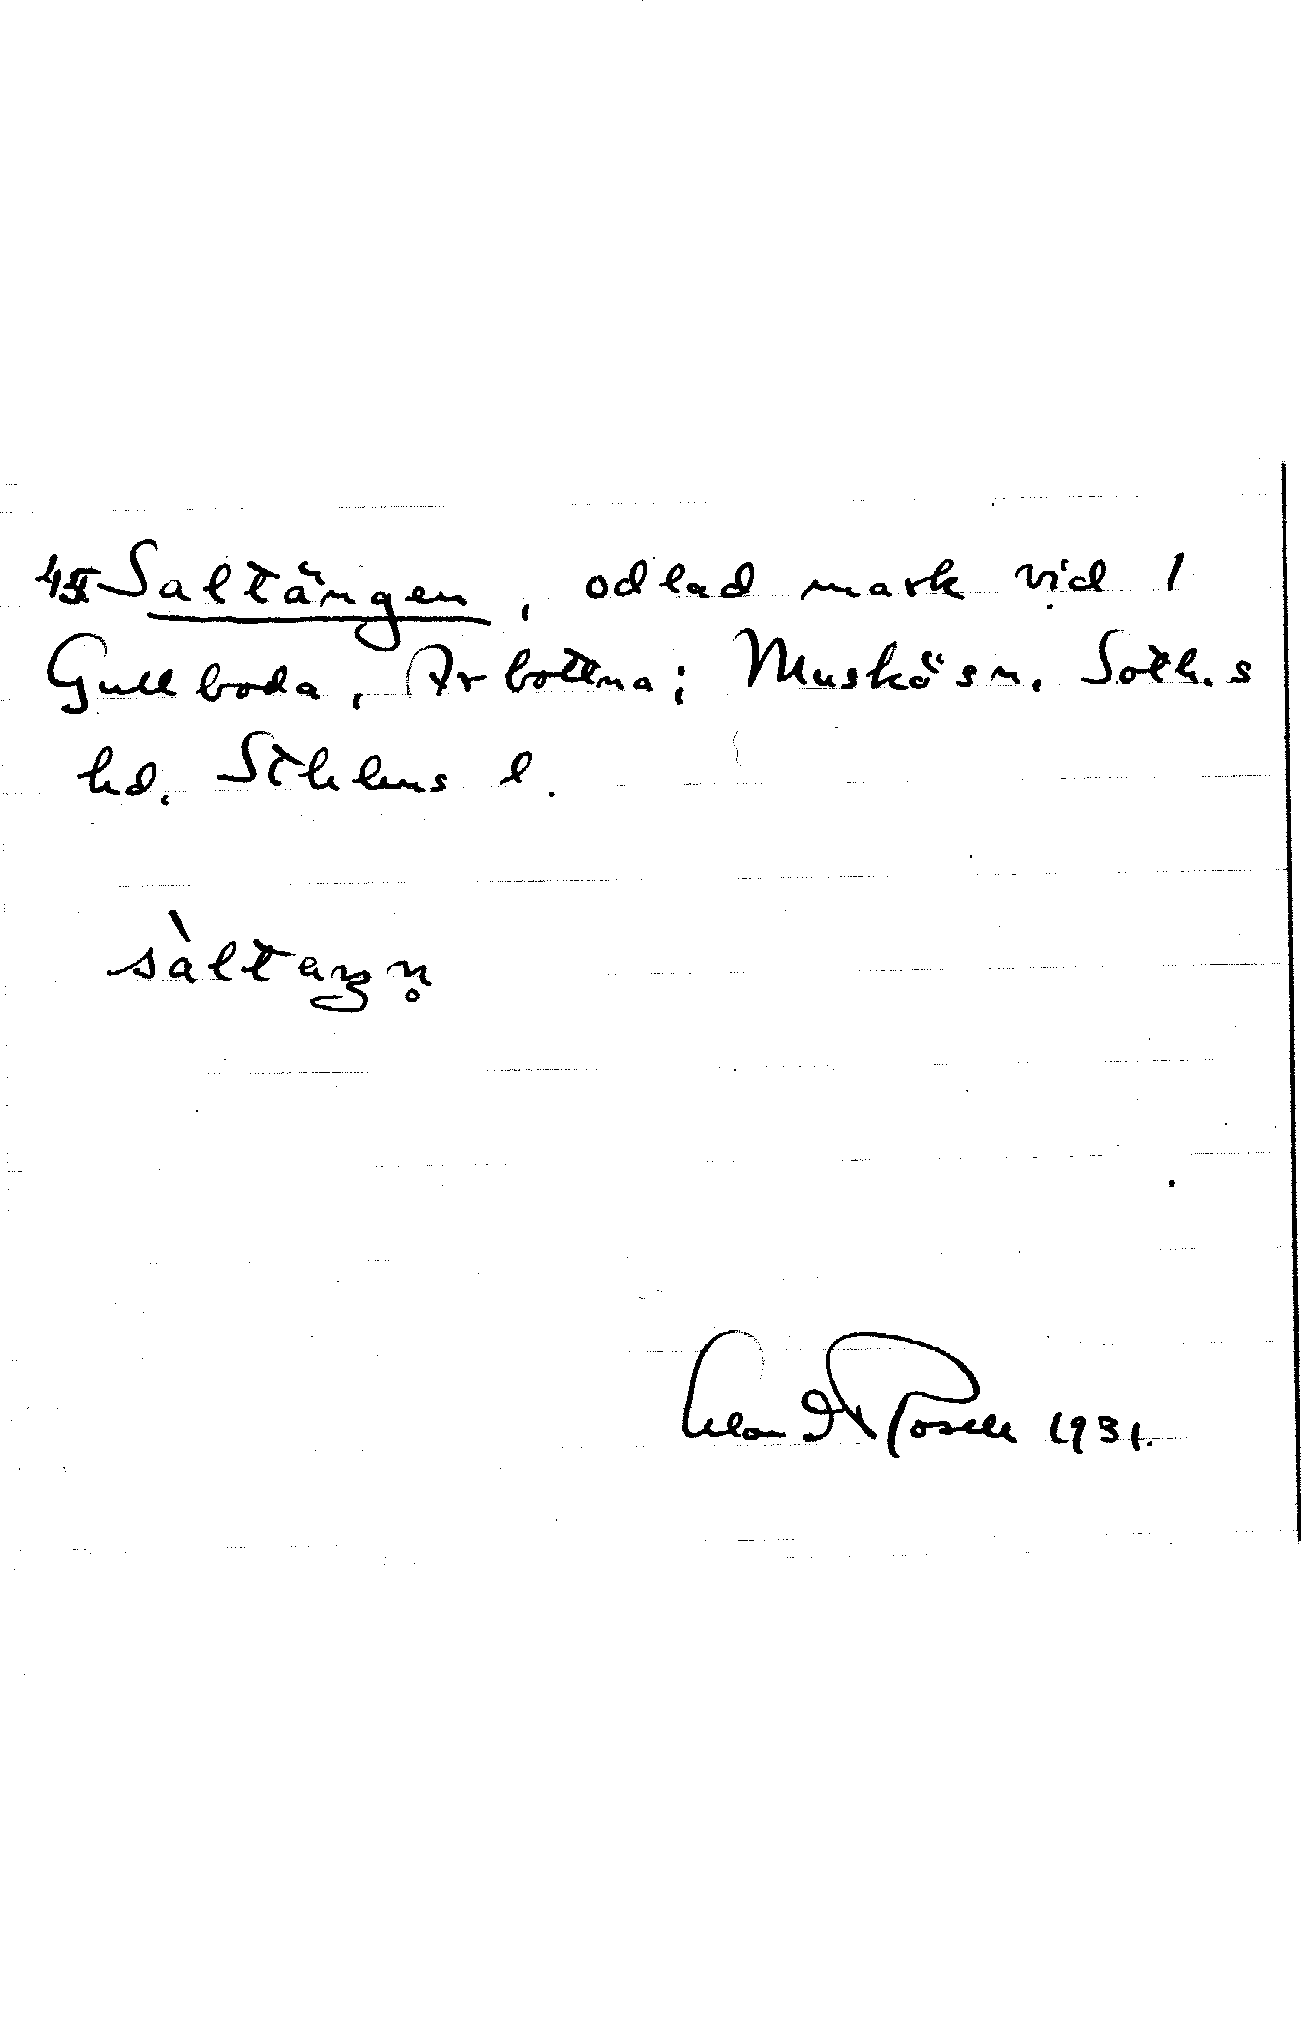 Saltängen, odlad mark vid 1
Gullboda, Arbottna; Muskö sn. Soth.s
hd. Sthlms l.
sàltaŋn̥
1931.